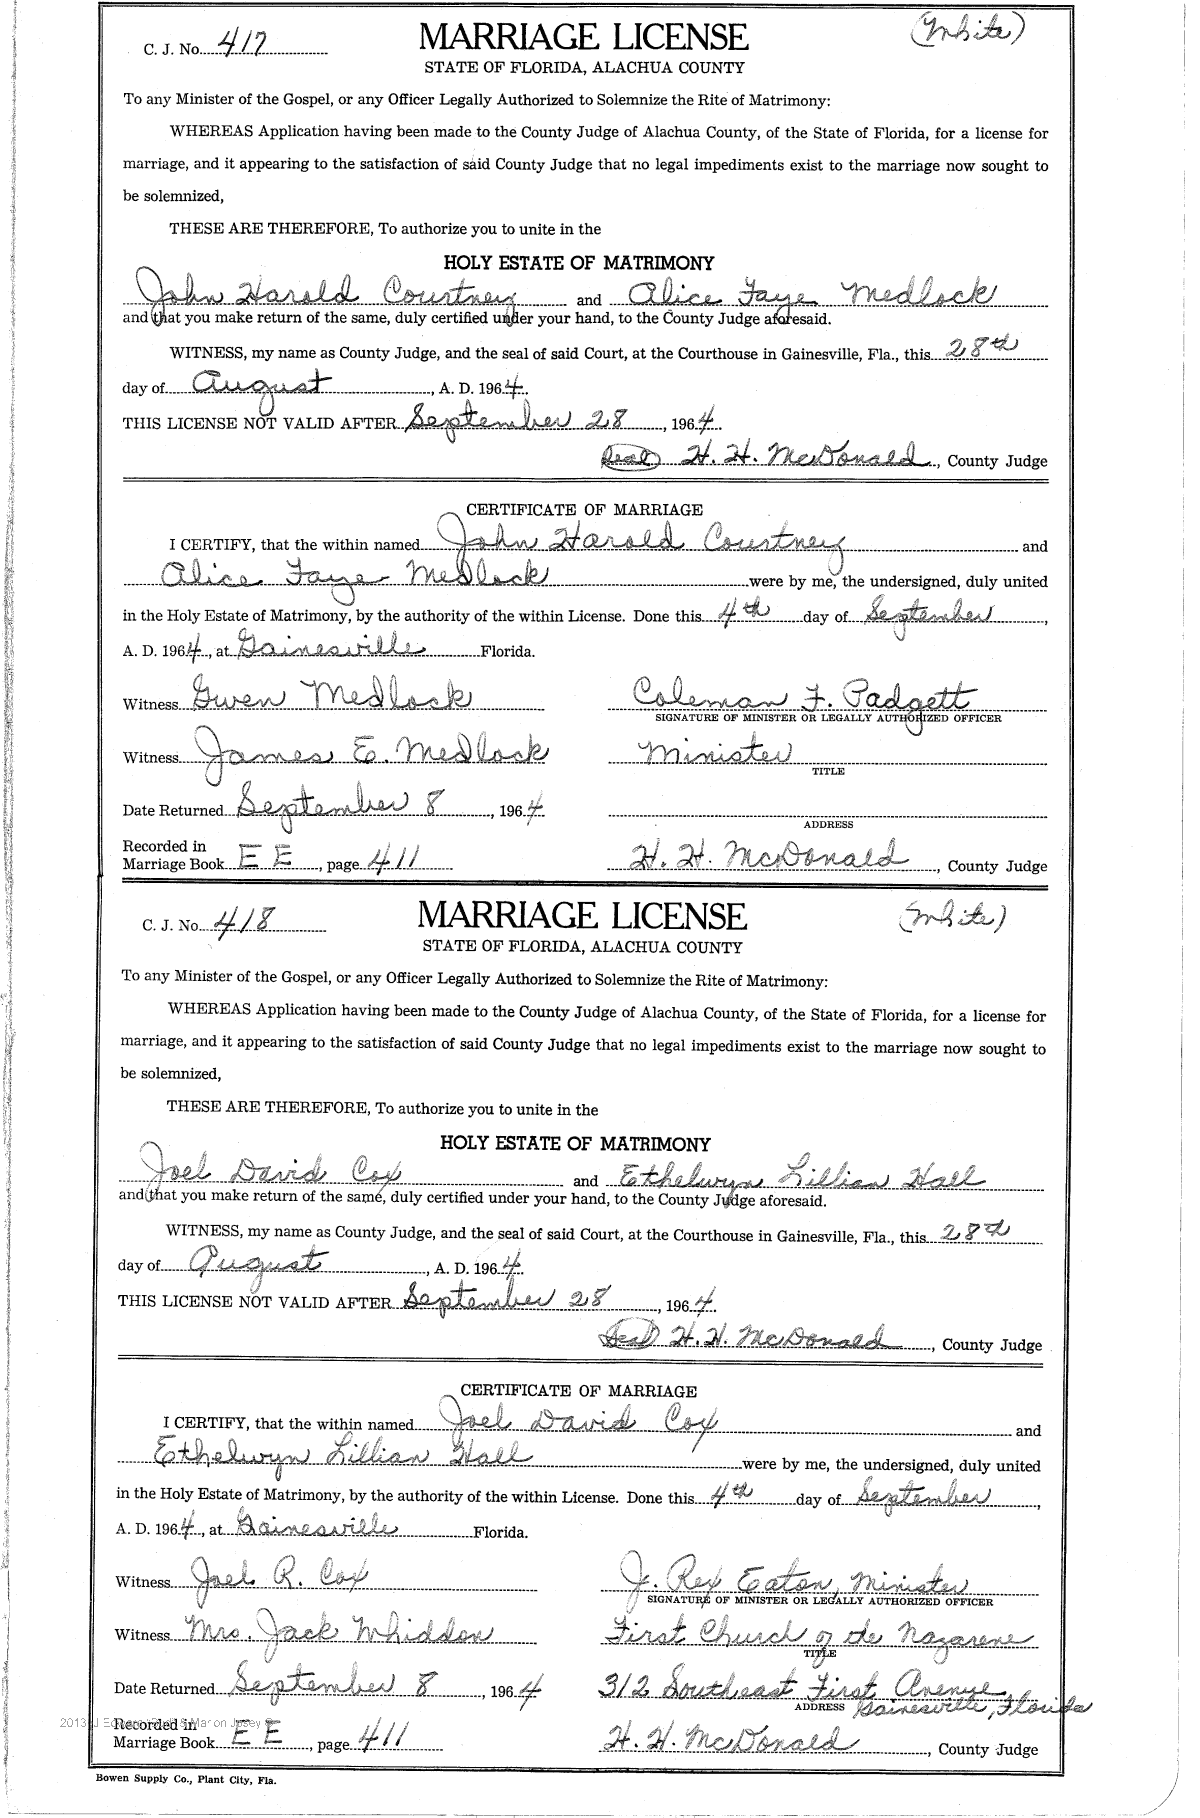 C. J. No. 417 MARRIAGE LICENSE (White)
STATE OF FLORIDA, ALACHUA COUNTY
To any Minister of the Gospel, or any Officer Legally Authorized to Solemnize the Rite of Matrimony:
WHEREAS Application having been made to the County Judge of Alachua County, of the State of Florida, for a license for
marriage, and it appearing to the satisfaction of said County Judge that no legal impediments exist to the marriage now sought to
be solemnized,
THESE ARE THEREFORE, To authorize you to unite in the
HOLY ESTATE OF MATRIMONY
John Harold Courtney and Alice Faye Medlock
and that you make return of the same, duly certified under your hand, to the County Judge aforesaid.
WITNESS, my name as County Judge, and the seal of said Court, at the Courthouse in Gainesville, Fla., this 28th
day of August, A. D. 1964.
THIS LICENSE NOT VALID AFTER September 28, 1964.
(Seal) H. H. McDonald, County Judge
CERTIFICATE OF MARRIAGE
I CERTIFY, that the within named John Harold Courtney and
Alice Faye Medlock were by me, the undersigned, duly united
in the Holy Estate of Matrimony, by the authority of the within License. Done this 4th day of September,
A. D. 1964, at Gainesville Florida.
Witness Gwen Medlock Coleman F. Padgett
SIGNATURE OF MINISTER OR LEGALLY AUTHORIZED OFFICER
Witness James E. Medlock Minister
TITLE
Date Returned September 8, 1964
ADDRESS
Recorded in
Marriage Book E E, page 411 H. H. McDonald, County Judge
C. J. No. 418 MARRIAGE LICENSE (White)
STATE OF FLORIDA, ALACHUA COUNTY
To any Minister of the Gospel, or any Officer Legally Authorized to Solemnize the Rite of Matrimony:
WHEREAS Application having been made to the County Judge of Alachua County, of the State of Florida, for a license for
marriage, and it appearing to the satisfaction of said County Judge that no legal impediments exist to the marriage now sought to
be solemnized,
THESE ARE THEREFORE, To authorize you to unite in the
HOLY ESTATE OF MATRIMONY
Joel David Cox and Ethelwyn Lillian Hall
and that you make return of the same, duly certified under your hand, to the County Judge aforesaid.
WITNESS, my name as County Judge, and the seal of said Court, at the Courthouse in Gainesville, Fla., this 28th
day of August, A. D. 1964.
THIS LICENSE NOT VALID AFTER September 28, 1964.
(Seal) H. H. McDonald, County Judge
CERTIFICATE OF MARRIAGE
I CERTIFY, that the within named Joel David Cox and
Ethelwyn Lillian Hall were by me, the undersigned, duly united
in the Holy Estate of Matrimony, by the authority of the within License. Done this 4th day of September,
A. D. 1964, at Gainesville Florida.
Witness Joel R. Cox J. Rex Eaton, Minister
SIGNATURE OF MINISTER OR LEGALLY AUTHORIZED OFFICER
Witness Mrs. Jack Whidden First Church of the Nazarene
TITLE
Date Returned September 8, 1964 312 Southeast First Avenue
ADDRESS Gainesville, Florida
2013 J
Recorded in
Marriage Book E E, page 411 H. H. McDonald, County Judge
Bowen Supply Co., Plant City, Fla.